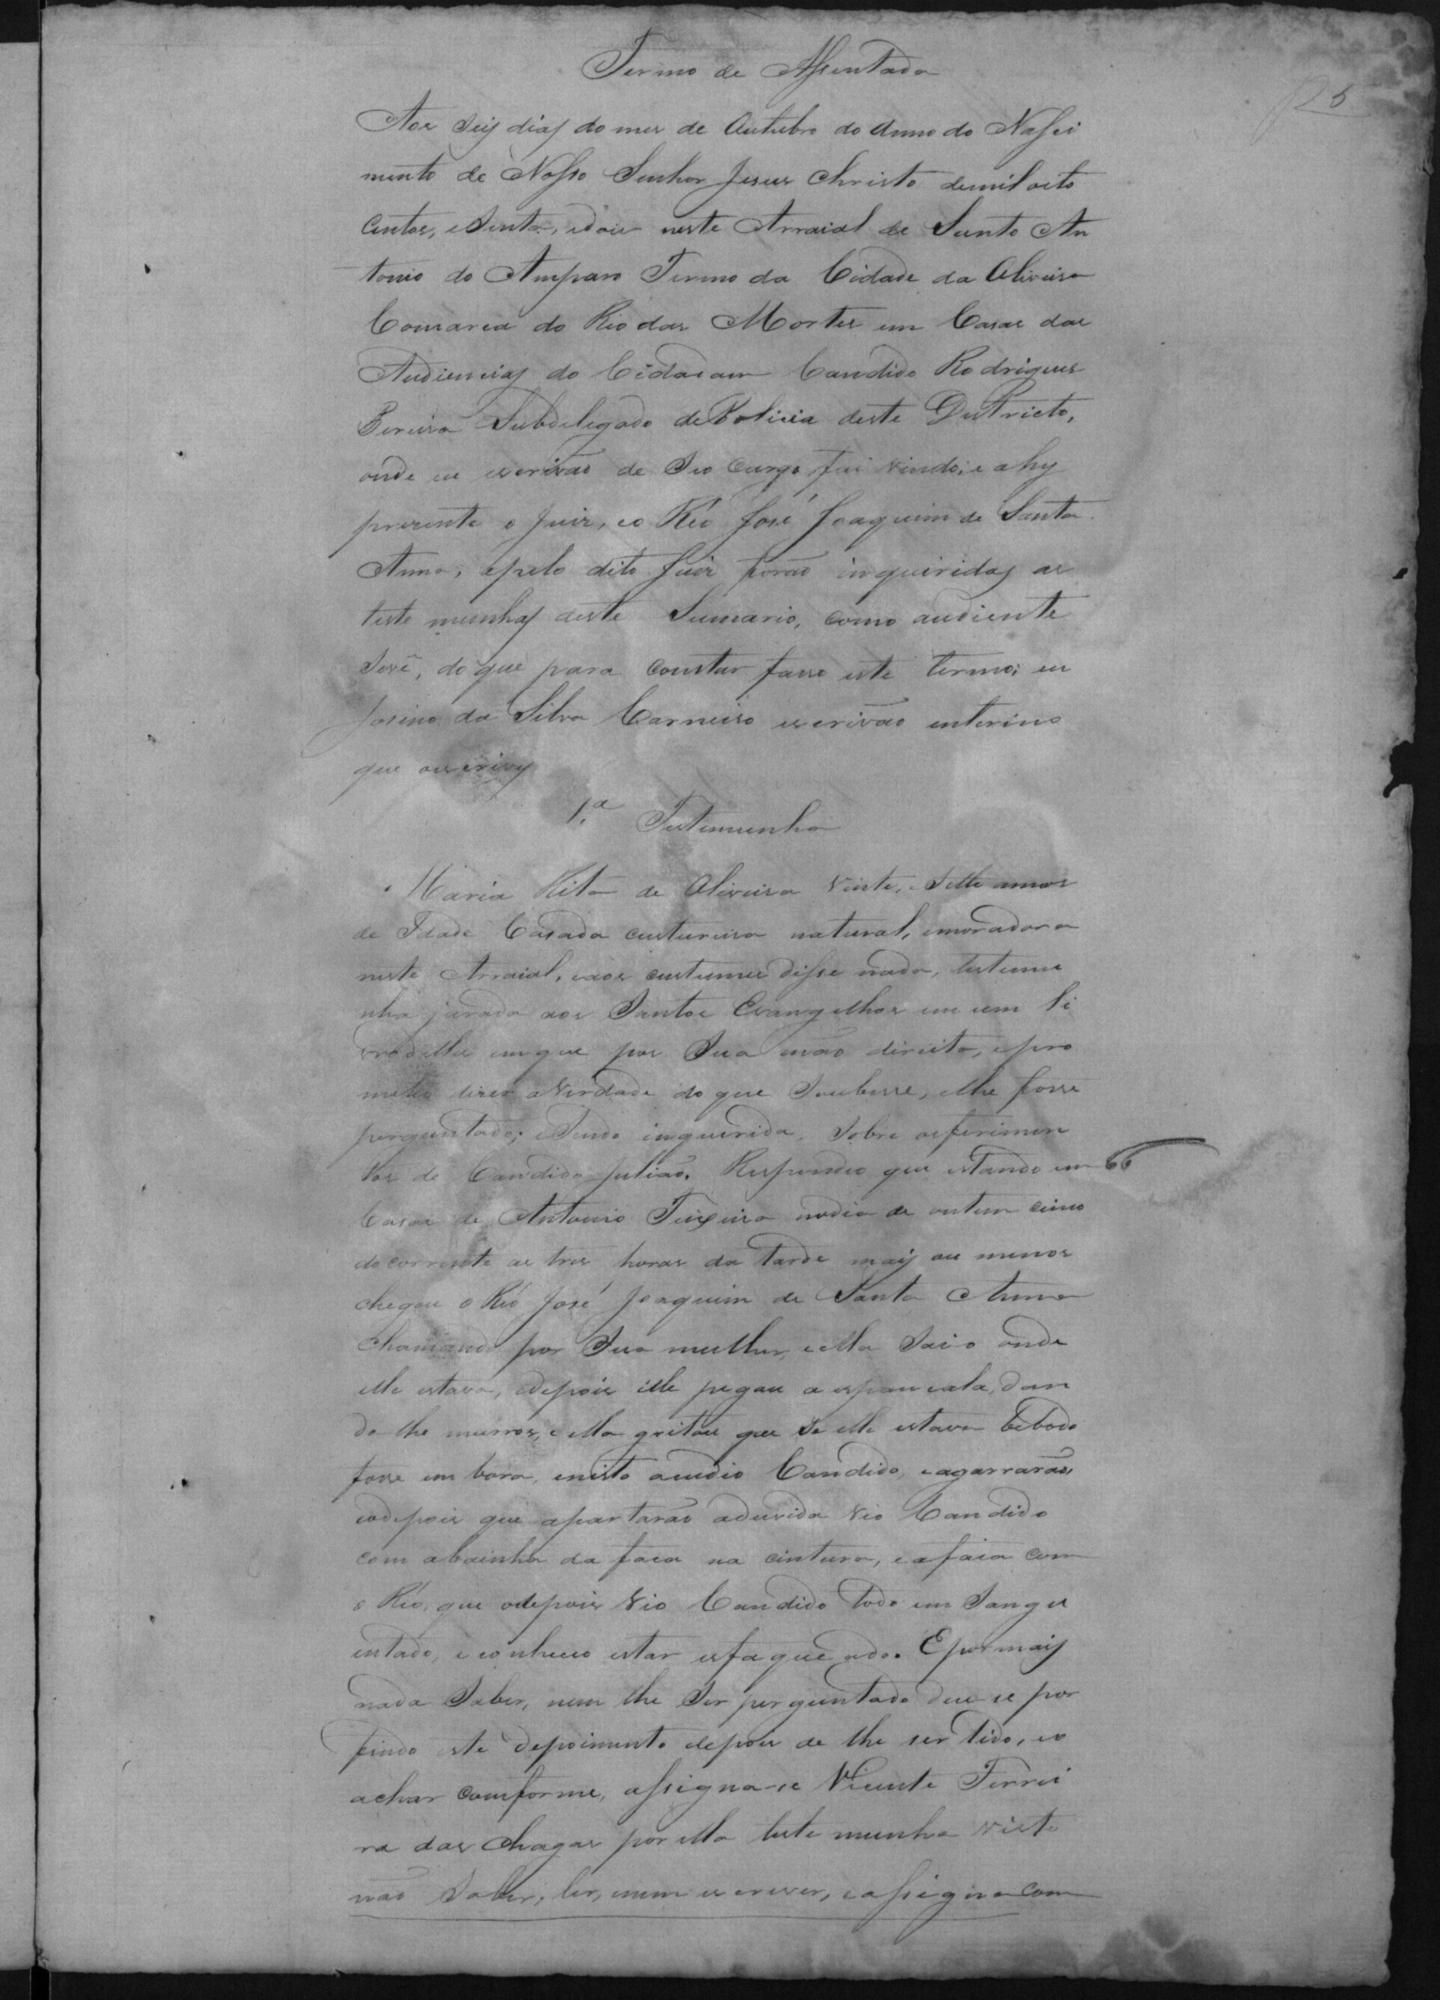 Termo de Assentada
25
Aos seis dias do mes de Outubro do Anno do Nasci
mento de Nosso Senhor Jesus Christo demil oito
centos, esenta, edois neste Arraial de Santo An
tonio do Amparo Termo da Cidade da Oliveira
Comarca do Rio das Mortes em Casas das
Audiencias do Cidadam Candido Rodrigues
Pereira Subdelegado de Policia deste Destricto,
onde eu escrivão de seo cargo fui vindo; e ahy
prezente o Juiz, eo Réo José Joaquim de Santa
Anna, epelo dito Juiz forão inqueridas as
teste munhas deste Sumario, como audiente
se vê, do que para constar fasso este termo; eu
Josino da Silva Carneiro escrivão enterino
que o escrivy
1.ª Testemunha
Maria Rita de Oliveira vinte, esette annos
de Idade Casada custureira natural, emoradora
neste Arraial, eaos custumes disse nada, testemu
nha jurada aos Santos Evangelhos em um li
vro delles emque pos sua mão direita, epro
meteo dizer averdade do que soubesse, elhe fosse
perguntado; esendo inquerida, sobre osferimen
tos de Candido Julião. Respondeo que estando em
Casas de Antonio Teixeira nodia de ontem cinco
do corrente as tres horas da tarde mais ou menos
chegou o Réo José Joaquim de Santa Anna
chamando por sua mulher, eella saio onde
elle estava, edepois elle pegou a espancala, dan
do lhe murros, e ella gritou que se elle estava bebado
fosse em bora, enisto acudio Candido, eagarrarãose
eodepois que apartarão aduvida vio Candido
com abainha da faca na cintura, eafaca com
o Réo, que odepois vio Candido todo em Sangu
entado, econheceo estar esfaqueado. Epormais
nada saber, nem lhe ser perguntado deu se por
findo este depoimento depois de lhe ser lido, eo
achar comforme, assigna-se Vicente Ferrei
ra das Chagas por ella teste munha visto
não saber, ler, enem escrever, eassigna com